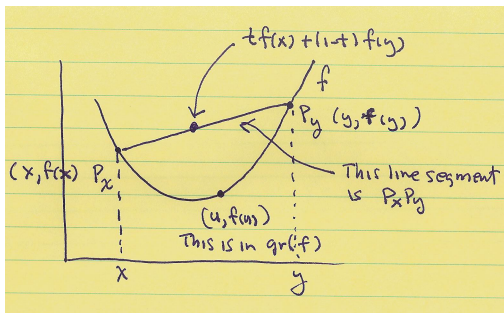 tf(x) + (1-t) f(y)
f
P_y (y, f(y))
(x, f(x) P_x
This line segment
is P_xP_y
(u, f(u))
This is in gr(f)
x
y